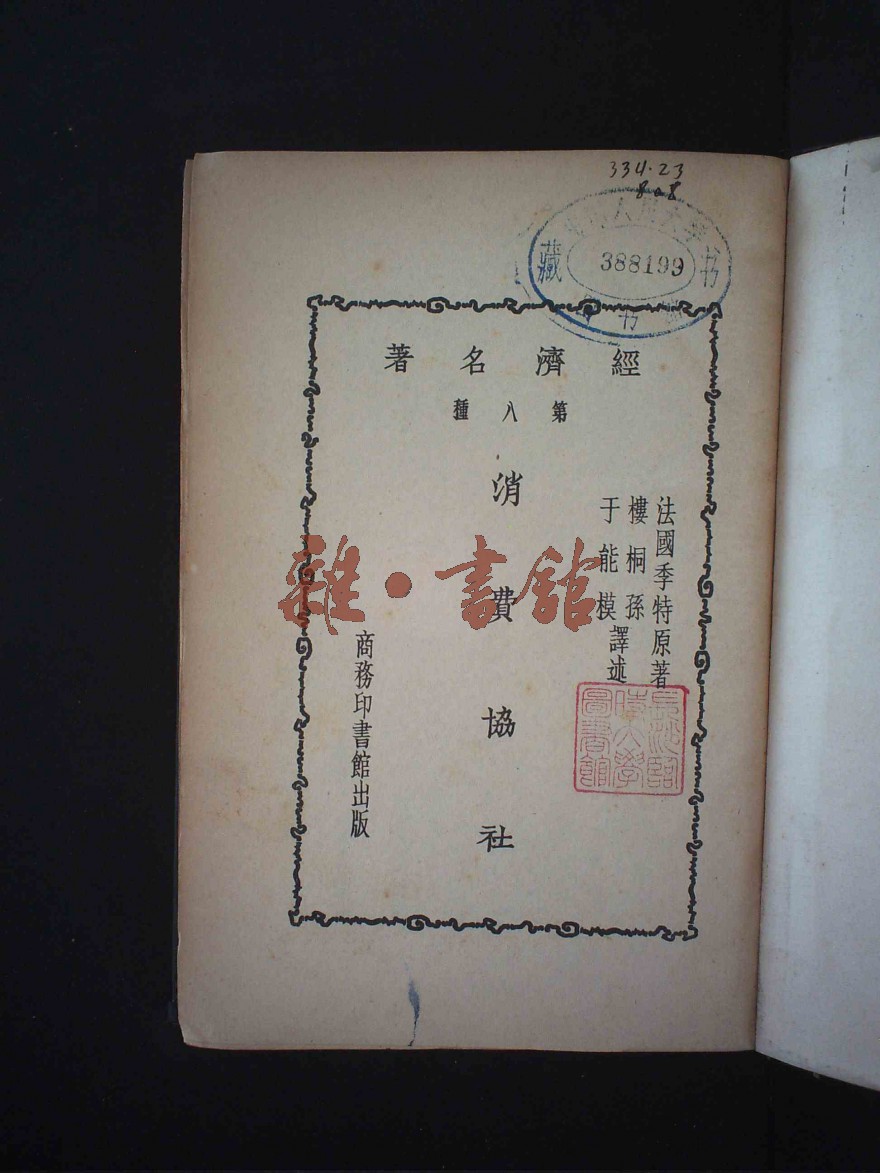 334.23
8a8
藏 书
388199
书
經濟名著
第八種
法國季特原著
樓桐孫
于能模
譯述
消費協社
商務印書館出版
雜·書館
圖書館